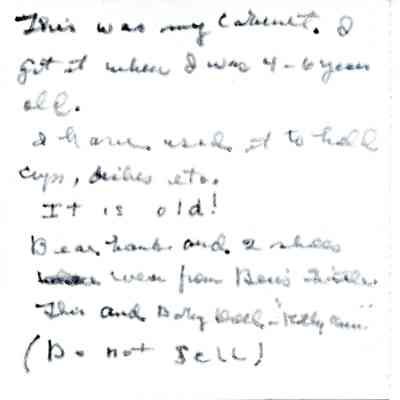 This was my cabinet. I
got it when I was 4-6 years
old.
I have used it to hold
cups, dishes etc.
It is old!
Bear, and 2
were from
This and Baby Doll - "Kelly Ann"
(Do not Sell!